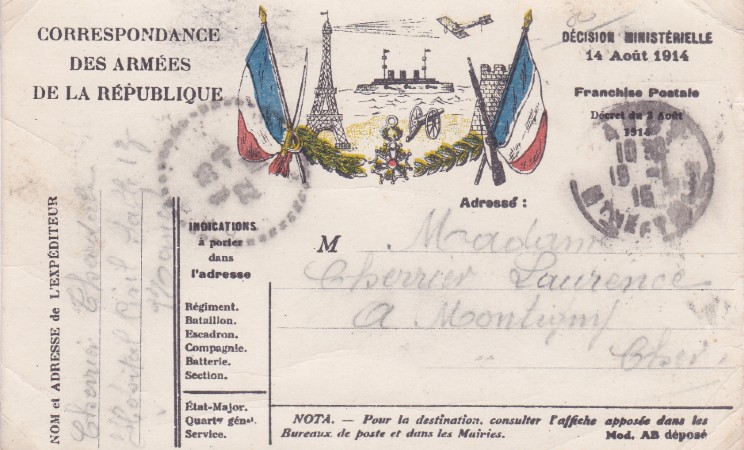 CORRESPONDANCE
DES ARMÉES
DE LA RÉPUBLIQUE
DÉCISION MINISTÉRIELLE
14 Août 1914
Franchise Postale
Décret du 3 Août
1914
Adresse :
NOM et ADRESSE de L'EXPÉDITEUR
Cherrier
Hôpital Civil Salle 17
INDICATIONS
à porter
dans
l'adresse
Régiment.
Bataillon.
Escadron.
Compagnie.
Batterie.
Section.
État-Major.
Quartʳ génᵃˡ.
Service.
M Madame
Cherrier Laurence
A Montigny
Cher
NOTA. — Pour la destination, consulter l'affiche apposée dans les
Bureaux de poste et dans les Mairies.
Mod. AB déposé